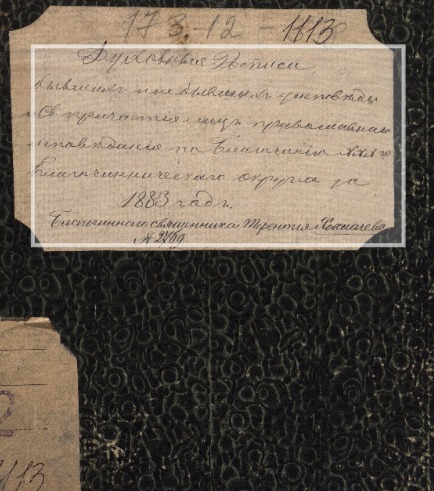 173-12-1113
Духовныя Росписи
бывшихъ и небывшихъ у исповѣди
и Св. причастія лицъ православнаго
исповѣданія по Благочинію
Благочинническаго округа за
1883 годъ.
Благочиннаго священника Терентія
№ 2769
2
1113